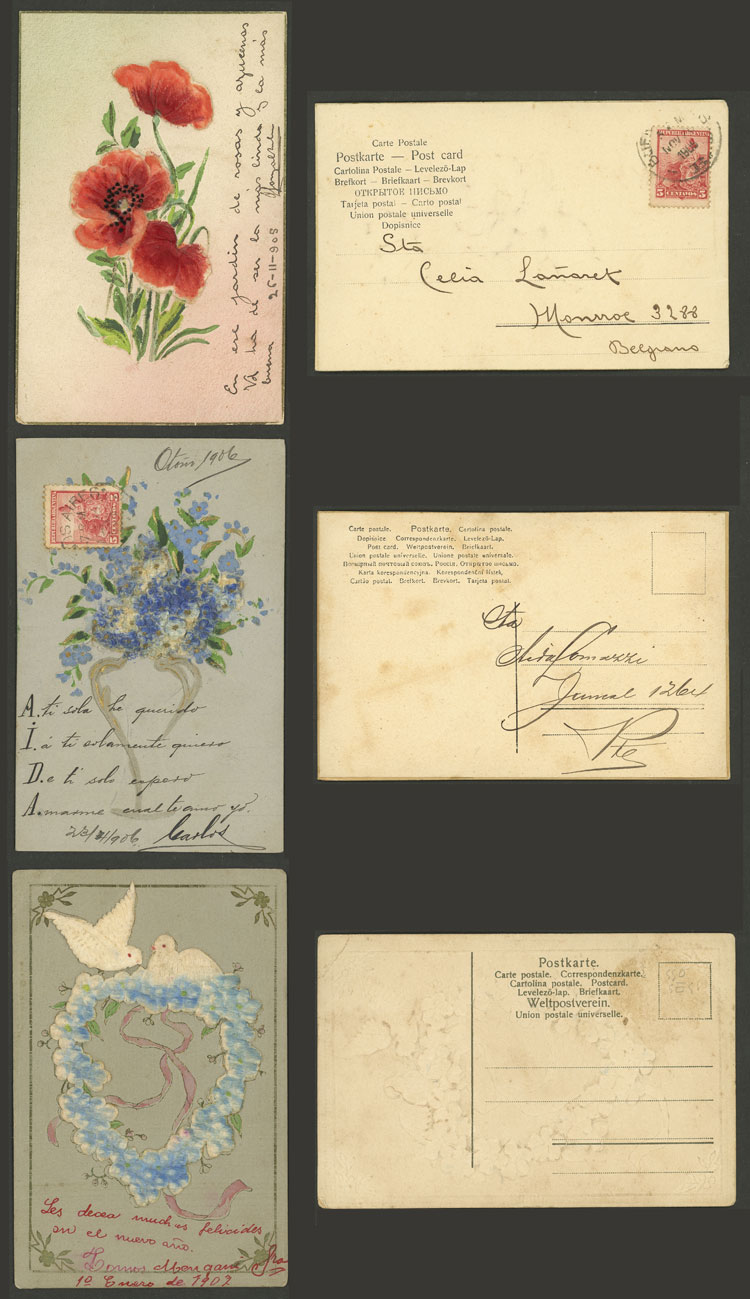 En ese jardin de rosas y azucenas
Vd ha de ser la más linda y la más
buena
26-11-905
Carte Postale
Postkarte — Post card
Cartolina Postale – Levelezö-Lap
Brefkort – Briefkaart – Brevkort
ОТКРЫТОЕ ПИСЬМО
Tarjeta postal – Carto postal
Union postale universelle
Dopisnice
REPUBLICA ARGENTINA
5 CENTAVOS 5
NOV
Sta
Celia Lañaret
Monroe 3288
Belgrano
Otoño/906
5 CENTAVOS
S AIRES
A. ti sola he querido
I. á ti solamente quiero
D. e ti solo espero
A. marme cual te amo yó.
Carlos
Carte postale. Postkarte. Cartolina postale.
Dopisnice Correspondenzkarte. Levelezö-Lap.
Post card. Weltpostverein. Briefkaart.
Union postale universelle. Unione postale universale.
Всемірный почтовый союзъ. Россія. Открытое письмо.
Karta korespondencyjna. Korespondenční lístek.
Cartão postal. Brefkort. Brevkort. Tarjeta postal.
Sta
Aida Comazzi
Juncal 1264
Pte
Les decea muchas felicides
en el nuevo año.
1º Enero de 1907
Postkarte.
Carte postale. Correspondenzkarte.
Cartolina postale. Postcard.
Levelezö-lap. Briefkaart.
Weltpostverein.
Union postale universelle.